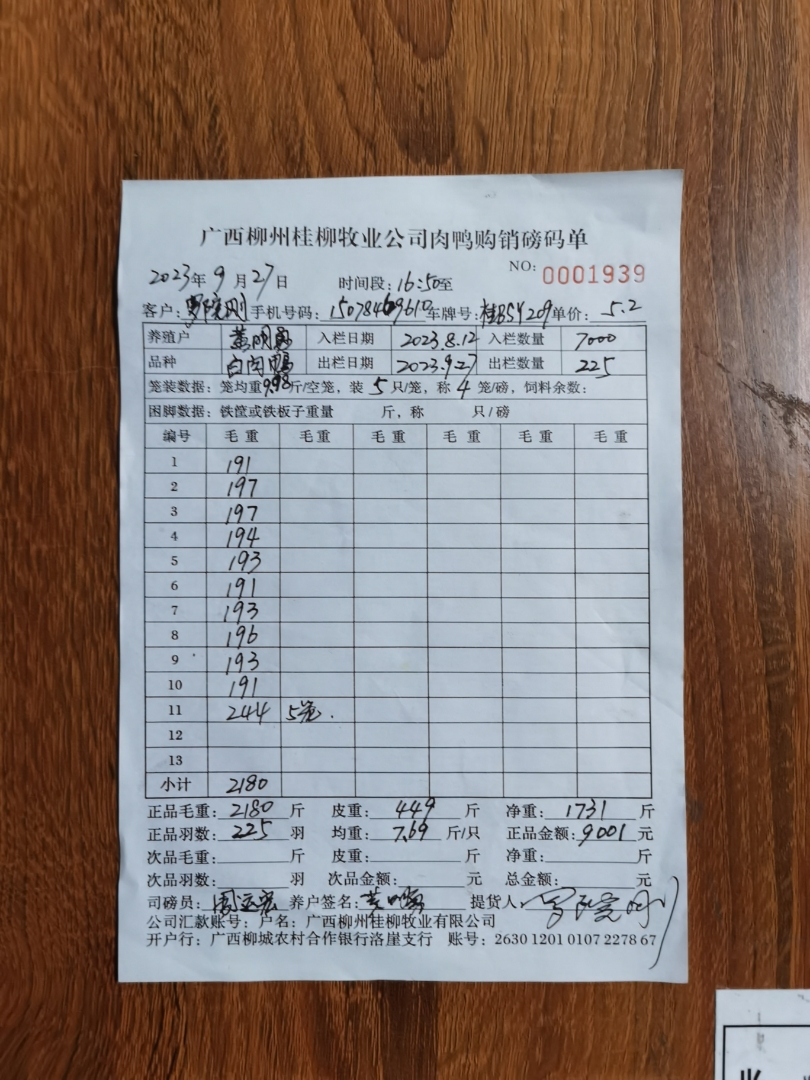 广西柳州桂柳牧业公司肉鸭购销磅码单
NO: 0001939
2023年9月27日 时间段:16:50至
客户: 手机号码: 车牌号:桂BSY209 单价:5.2
养殖户 入栏日期 2023.8.12 入栏数量 7000
品种 白肉鸭 出栏日期 2023.9.27 出栏数量 225
笼装数据:笼均重9.98斤/空笼,装5只/笼,称4笼/磅,饲料余数:
困脚数据:铁筐或铁板子重量 斤,称 只/磅
编号 毛重 毛重 毛重 毛重 毛重 毛重
1 191
2 197
3 197
4 194
5 193
6 191
7 193
8 196
9 193
10 191
11 244 5笼.
12
13
小计 2180
正品毛重:2180斤 皮重:449斤 净重:1731斤
正品羽数:225羽 均重:7.69斤/只 正品金额:9001元
次品毛重: 斤 皮重: 斤 净重: 斤
次品羽数: 羽 次品金额: 元 总金额: 元
司磅员: 养户签名: 提货人:
公司汇款账号:户名:广西柳州桂柳牧业有限公司
开户行:广西柳城农村合作银行洛崖支行 账号:2630 1201 0107 2278 67